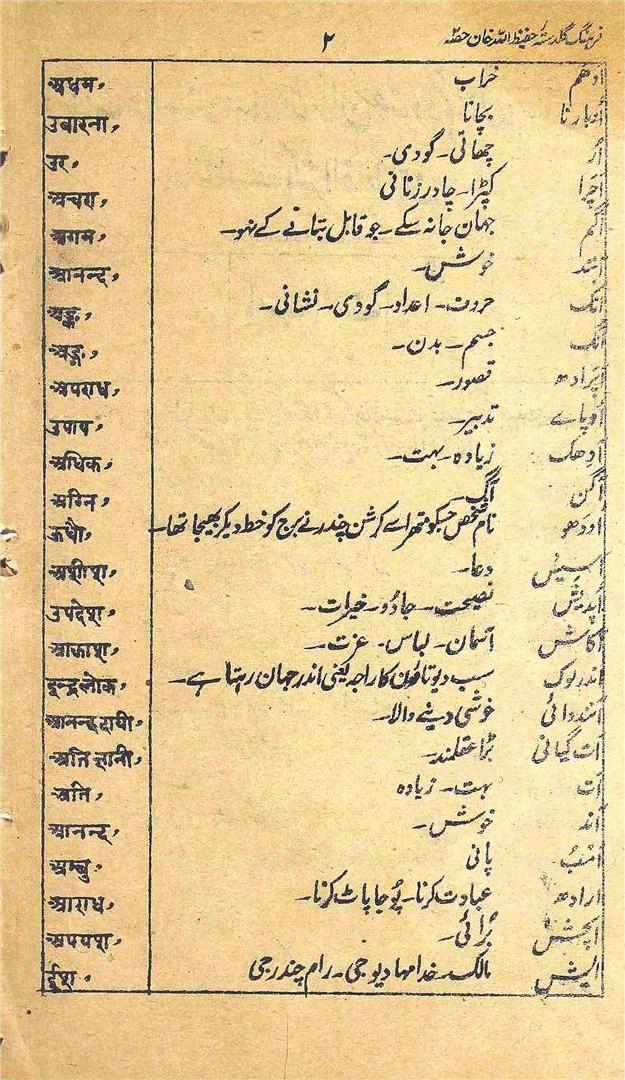 فرہنگ گلدستۂ حفیظ اللہ خان حصہ ۲
ادھم خراب अधम,
اوبارنا بچانا उबारना,
اُر چھاتی۔ گودی۔ उर,
اچرا کپڑا۔ چادر زنانی अचरा,
اگم جہان جانہ سکے۔ جو قابل بتانے کے نہو۔ अगम,
انند خوشی۔ आनन्द,
انک حروف۔ اعداد۔ گودی۔ نشانی۔ अङ्क,
جسم۔ بدن۔ अङ्ग,
اپرادھ قصور۔ अपराध,
اوپاے تدبیر۔ उपाय,
ادھک زیادہ۔ بہت۔ अधिक,
اگن آگ۔ अग्नि,
اودھو نام شخص جسکو متھراسے کرشن چندر نے برج کو خط دیکر بھیجا تھا۔ ऊधौ,
اسیش دعا۔ अशीश,
اُپدیش نصیحت۔ جادُو۔ خیرات۔ उपदेश,
آکاش آسمان۔ لباس۔ عزت۔ आकाश,
اندرلوک سب دیوتاؤن کا راجہ یعنی اندر جہان رہتا ہے۔ इन्द्रलोक,
آنند دائی خوشی دینے والا۔ आनन्ददायी,
ات گیانی بڑا عقلمند۔ अति ज्ञानी,
اَت بہت۔ زیادہ अति,
آنند خوشی۔ आनन्द,
انبُ پانی अम्बु,
ارادھ عبادت کرنا۔ پُوجا پاٹ کرنا۔ आराध,
اپجش بُرائی۔ अपयश,
ایش مالک۔ خدا مہادیو جی۔ رام چندر جی ईश,